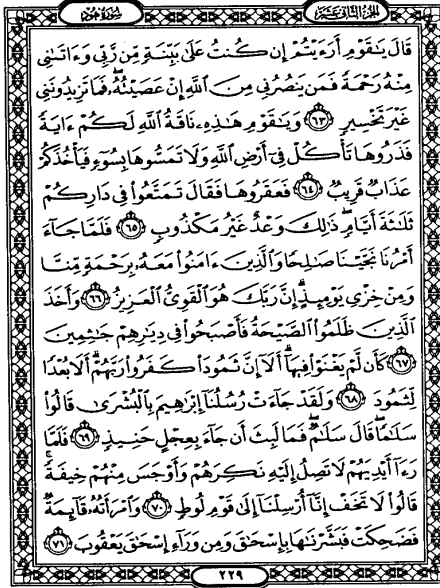 الجزء الثاني عشر
سورة هود
قَالَ يَـٰقَوْمِ أَرَءَيْتُمْ إِن كُنتُ عَلَىٰ بَيِّنَةٍ مِّن رَّبِّى وَءَاتَىٰنِى
مِنْهُ رَحْمَةً فَمَن يَنصُرُنِى مِنَ ٱللَّهِ إِنْ عَصَيْتُهُۥ فَمَا تَزِيدُونَنِى
غَيْرَ تَخْسِيرٍ ٦٣ وَيَـٰقَوْمِ هَـٰذِهِۦ نَاقَةُ ٱللَّهِ لَكُمْ ءَايَةً
فَذَرُوهَا تَأْكُلْ فِىٓ أَرْضِ ٱللَّهِ وَلَا تَمَسُّوهَا بِسُوٓءٍ فَيَأْخُذَكُمْ
عَذَابٌ قَرِيبٌ ٦٤ فَعَقَرُوهَا فَقَالَ تَمَتَّعُوا۟ فِى دَارِكُمْ
ثَلَـٰثَةَ أَيَّامٍ ۖ ذَٰلِكَ وَعْدٌ غَيْرُ مَكْذُوبٍ ٦٥ فَلَمَّا جَآءَ
أَمْرُنَا نَجَّيْنَا صَـٰلِحًا وَٱلَّذِينَ ءَامَنُوا۟ مَعَهُۥ بِرَحْمَةٍ مِّنَّا
وَمِنْ خِزْىِ يَوْمِئِذٍ ۗ إِنَّ رَبَّكَ هُوَ ٱلْقَوِىُّ ٱلْعَزِيزُ ٦٦ وَأَخَذَ
ٱلَّذِينَ ظَلَمُوا۟ ٱلصَّيْحَةُ فَأَصْبَحُوا۟ فِى دِيَـٰرِهِمْ جَـٰثِمِينَ
٦٧ كَأَن لَّمْ يَغْنَوْا۟ فِيهَآ ۗ أَلَآ إِنَّ ثَمُودَا۟ كَفَرُوا۟ رَبَّهُمْ ۗ أَلَا بُعْدًا
لِّثَمُودَ ٦٨ وَلَقَدْ جَآءَتْ رُسُلُنَآ إِبْرَٰهِيمَ بِٱلْبُشْرَىٰ قَالُوا۟
سَلَـٰمًا ۖ قَالَ سَلَـٰمٌ ۖ فَمَا لَبِثَ أَن جَآءَ بِعِجْلٍ حَنِيذٍ ٦٩ فَلَمَّا
رَءَآ أَيْدِيَهُمْ لَا تَصِلُ إِلَيْهِ نَكِرَهُمْ وَأَوْجَسَ مِنْهُمْ خِيفَةً ۚ
قَالُوا۟ لَا تَخَفْ إِنَّآ أُرْسِلْنَآ إِلَىٰ قَوْمِ لُوطٍ ٧٠ وَٱمْرَأَتُهُۥ قَآئِمَةٌ
فَضَحِكَتْ فَبَشَّرْنَـٰهَا بِإِسْحَـٰقَ وَمِن وَرَآءِ إِسْحَـٰقَ يَعْقُوبَ ٧١
٢٢٩